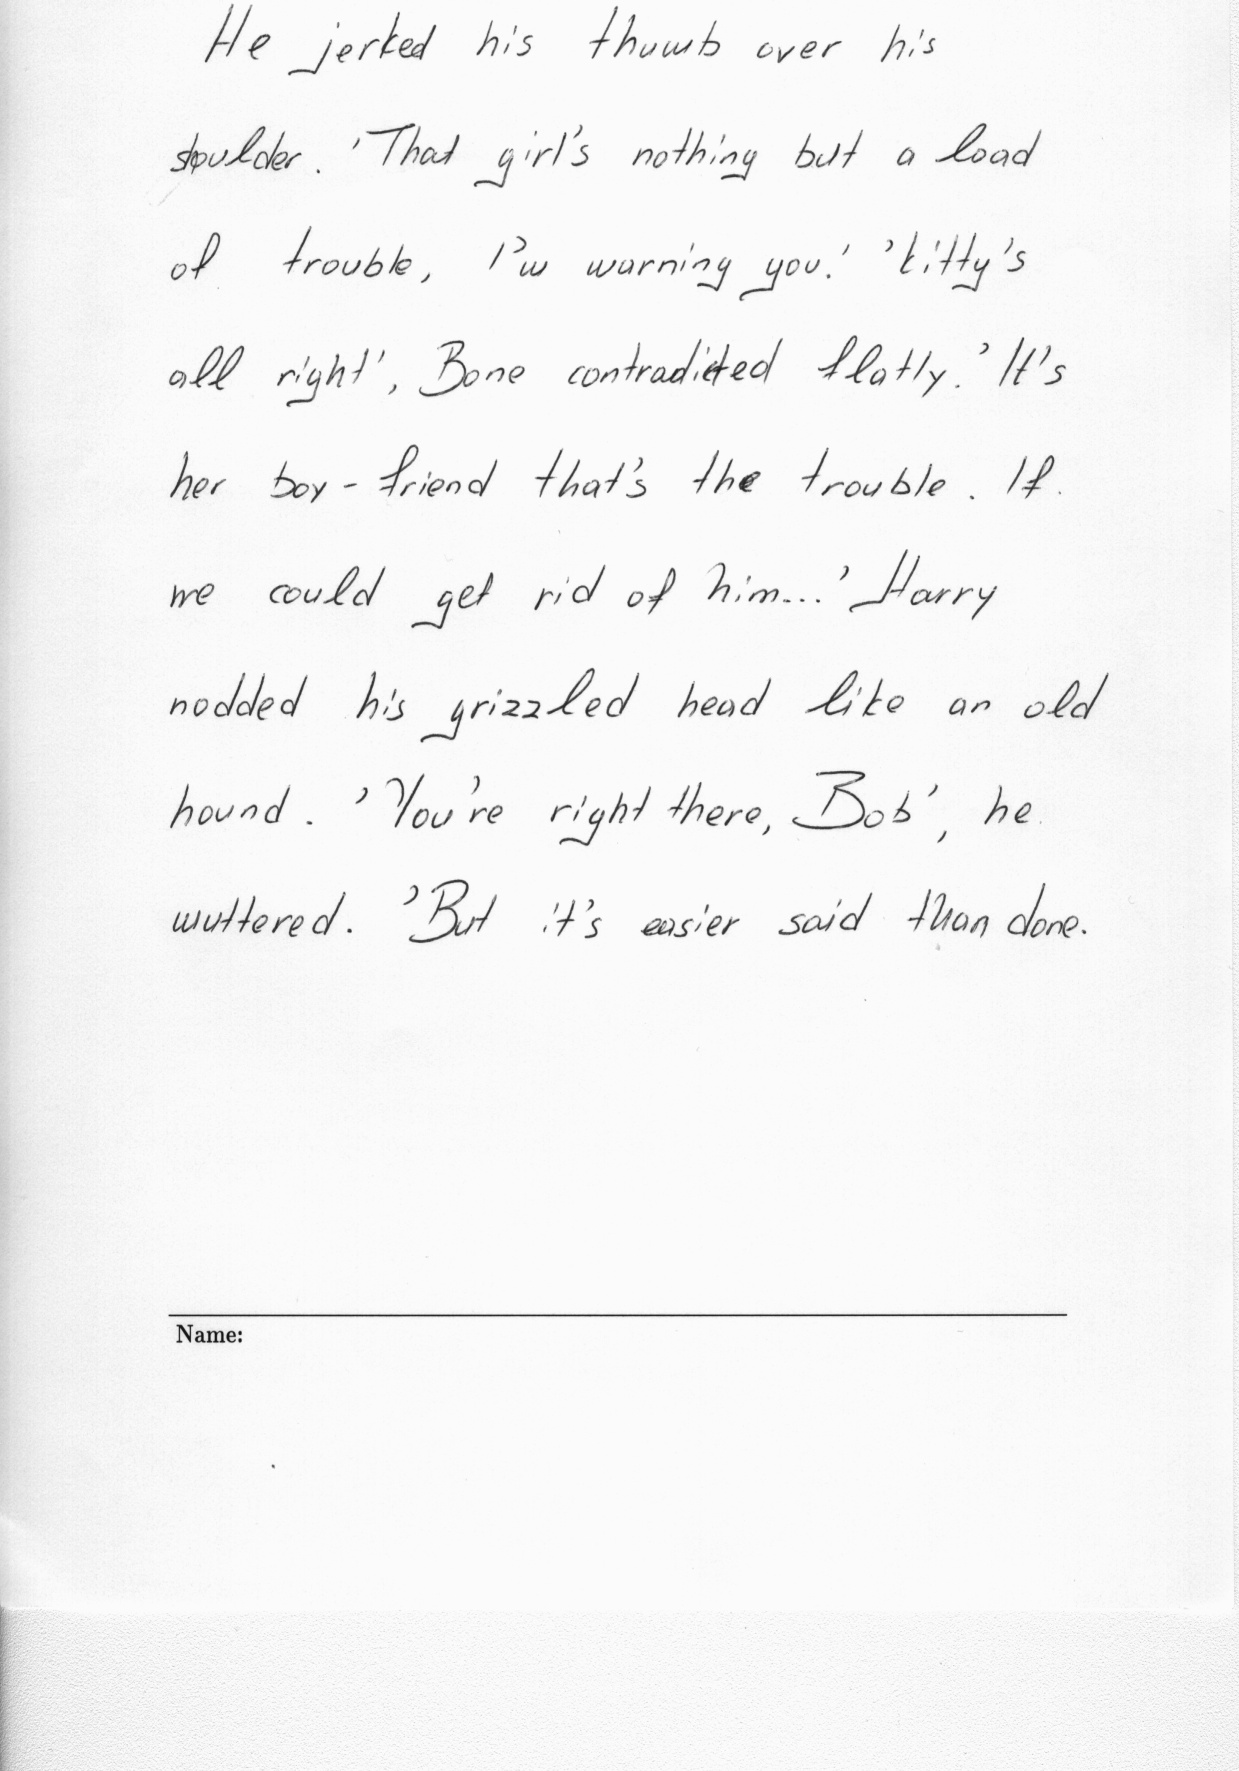 He jerked his thumb over his
shoulder. 'That girl's nothing but a load
of trouble, I'm warning you.' 'Kitty's
all right', Bone contradicted flatly.' It's
her boy-friend that's the trouble. If
we could get rid of him...' Harry
nodded his grizzled head like an old
hound. 'You're right there, Bob', he
muttered. 'But it's easier said than done.
Name: